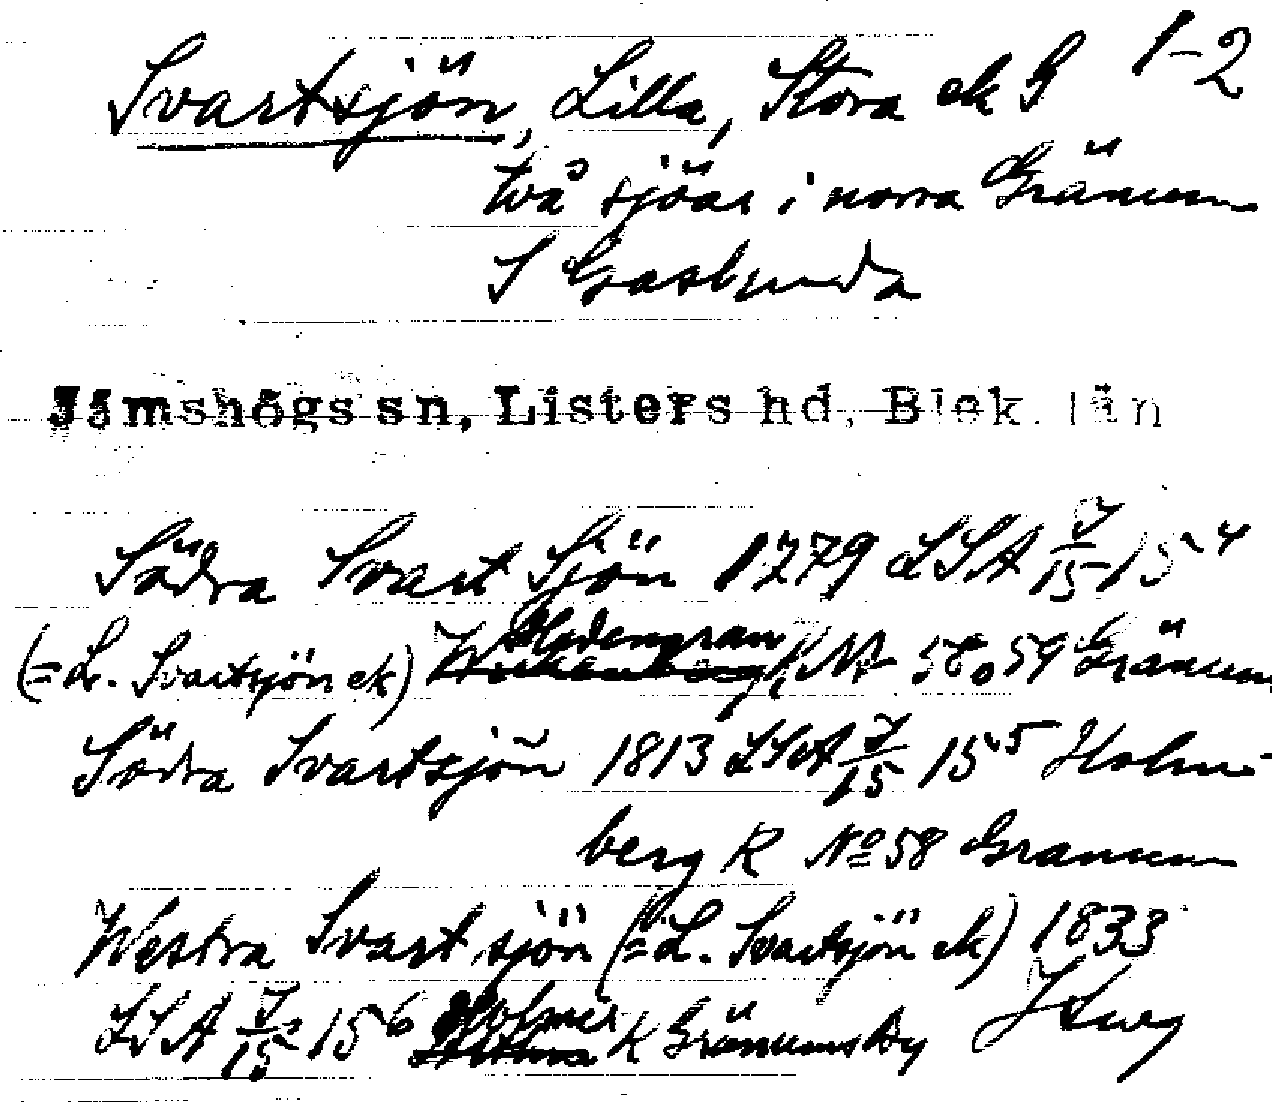 Svartsjön, Lilla, Stora ek G 1-2
två sjöar i norra Gränum
S Gaslunda
Jämshögs sn, Listers hd, Blek. län
Södra Svart Sjön 1779 LSA J/15 15⁴
(= L. Svartsjön ek) K No 58 o 59 Gränum
Södra Svartsjön 1813 LSA J/15 15⁵ Holm-
berg K No 58 Granum
Westra Svartsjön (= L. Svartsjön ek) 1833
LSA J/15 15⁶ Holmer K Gränums by